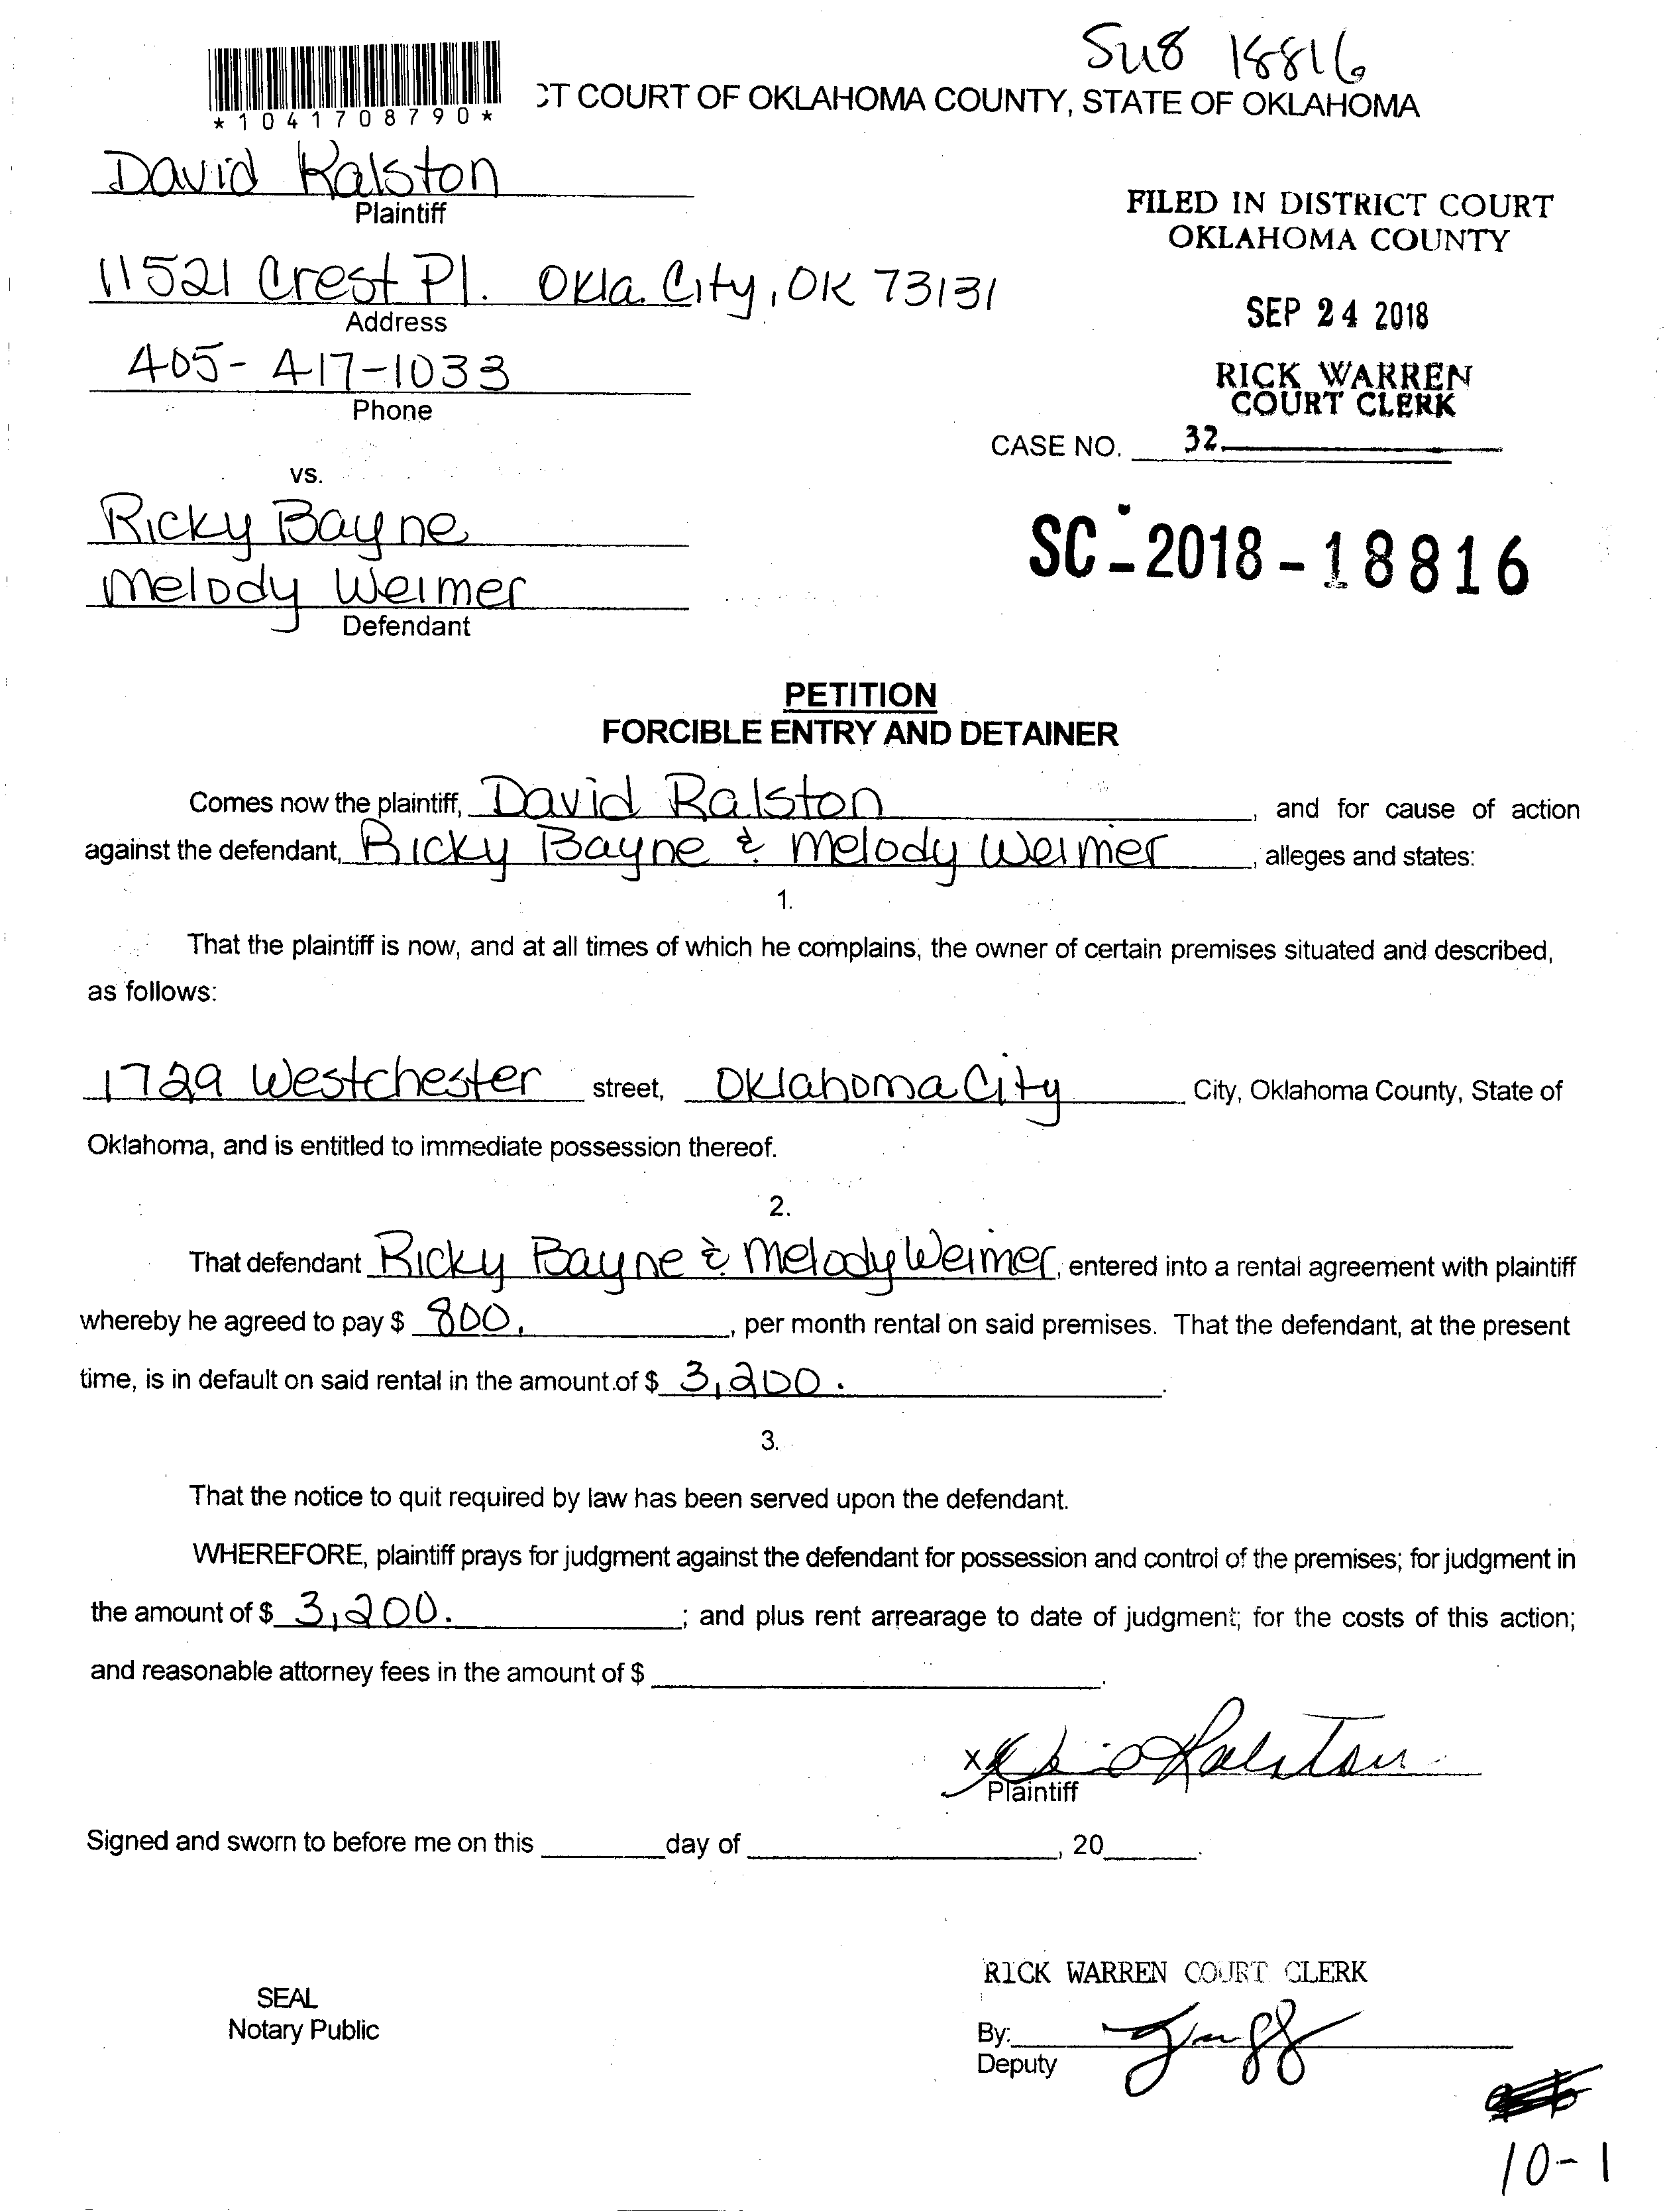 Su8 18816
*1041708790*
CT COURT OF OKLAHOMA COUNTY, STATE OF OKLAHOMA
David Ralston
Plaintiff
FILED IN DISTRICT COURT
OKLAHOMA COUNTY
11521 Crest Pl. Okla. City, OK 73131
Address
SEP 24 2018
405-417-1033
Phone
RICK WARREN
COURT CLERK
CASE NO. 32
vs.
Ricky Bayne
Melody Weimer
Defendant
SC-2018-18816
PETITION
FORCIBLE ENTRY AND DETAINER
Comes now the plaintiff, David Ralston, and for cause of action
against the defendant, Ricky Bayne & Melody Weimer, alleges and states:
1.
That the plaintiff is now, and at all times of which he complains, the owner of certain premises situated and described,
as follows:
1729 Westchester street, Oklahoma City City, Oklahoma County, State of
Oklahoma, and is entitled to immediate possession thereof.
2.
That defendant Ricky Bayne & Melody Weimer, entered into a rental agreement with plaintiff
whereby he agreed to pay $ 800., per month rental on said premises. That the defendant, at the present
time, is in default on said rental in the amount of $ 3,200.
3.
That the notice to quit required by law has been served upon the defendant.
WHEREFORE, plaintiff prays for judgment against the defendant for possession and control of the premises; for judgment in
the amount of $ 3,200. ; and plus rent arrearage to date of judgment; for the costs of this action;
and reasonable attorney fees in the amount of $ .
x David Ralston
Plaintiff
Signed and sworn to before me on this day of , 20 .
RICK WARREN COURT CLERK
SEAL
Notary Public
By:
Deputy
10-1